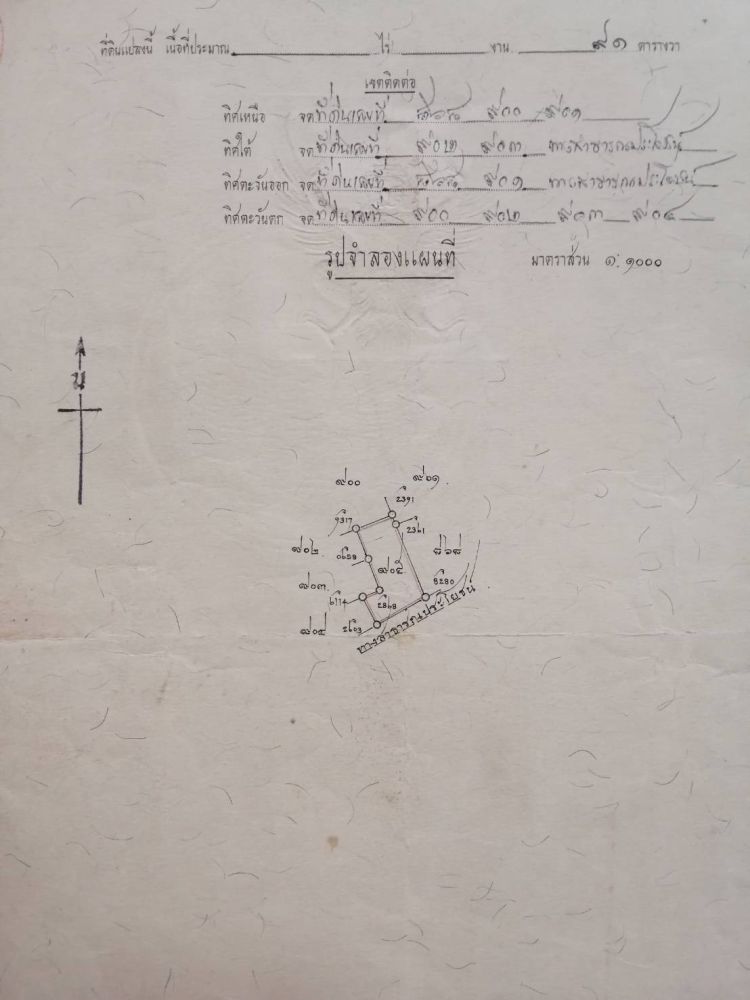 ที่ดินแปลงนี้ เนื้อที่ประมาณ ไร่ งาน ๙๑ ตารางวา
เขตติดต่อ
ทิศเหนือ จด ที่ดินเลขที่ ๙๐๐ ๙๐๑
ทิศใต้ จด ที่ดินเลขที่ ๙๐๒ ๙๐๓ ทางสาธารณประโยชน์
ทิศตะวันออก จด ที่ดินเลขที่ ๙๐๑ ทางสาธารณประโยชน์
ทิศตะวันตก จด ที่ดินเลขที่ ๙๐๐ ๙๐๒ ๙๐๓ ๙๐๔
รูปจำลองแผนที่ มาตราส่วน ๑:๑๐๐๐
น
๙๐๐ ๙๐๑
2391
9317 2361
๙๐๒ ๙๐๕
๙๐๓ 8280
2868
๙๐๔ 2603
ทางสาธารณประโยชน์